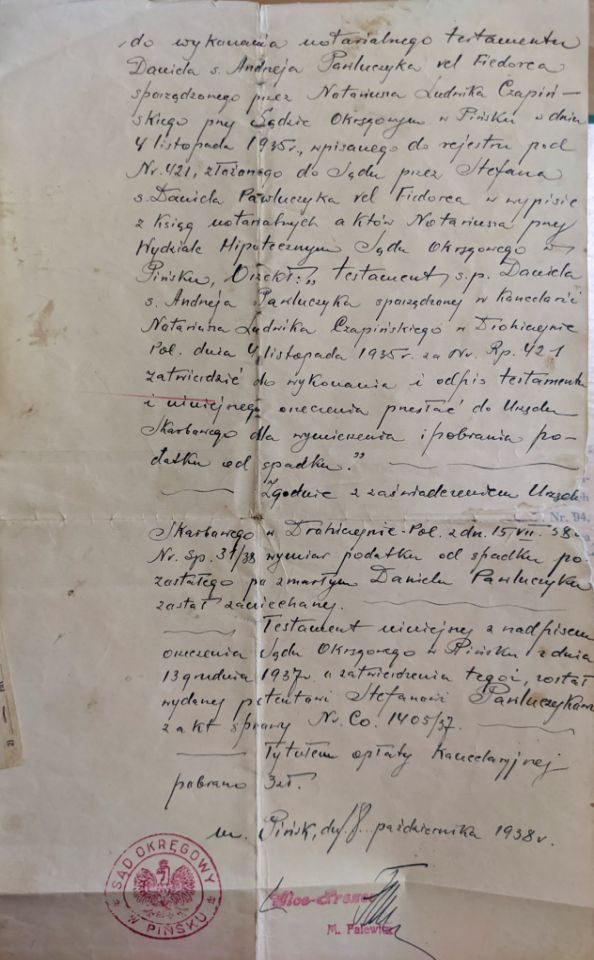 do wykonania notarialnego testamentu
Daniela s. Andreja Pawluczyka vel Fiedorca
sporządzonego przez Notariusza Ludwika Czapiń-
skiego przy Sądzie Okręgowym w Pińsku w dniu
4 listopada 1935r., wpisanego do rejestru pod
Nr. 421, złożonego do Sądu przez Stefana
s. Daniela Pawluczyka vel Fiedorca w wypisie
z ksiąg notarialnych aktów Notariusza przy
Wydziale Hipotecznym Sądu Okręgowego w
Pińsku, Orzekł: „testament, ś.p. Daniela
s. Andreja Pawluczyka sporządzony w Kancelarii
Notariusza Ludwika Czapińskiego w Drohiczynie
Pol. dnia 4 listopada 1935r. za Nr. Rp. 421
zatwierdzić do wykonania i odpis testamentu
i niniejszego orzeczenia przesłać do Urzędu
Skarbowego dla wymierzenia i pobrania po-
datku od spadku."
Zgodnie z zaświadczeniem Urzędu
Nr. 94.
Skarbowego w Drohiczynie-Pol. z dn. 15.VII.38
Nr. Sp. 31/38 wymiar podatku od spadku po-
zostałego po zmarłym Danielu Pawluczyku
został zaniechany.
Testament niniejszy z nadpisem
orzeczenia Sądu Okręgowego w Pińsku z dnia
13 grudnia 1937r. o zatwierdzeniu tegoż, został
wydany petentowi Stefanowi Pawluczykowi
z akt sprawy Nr. Co. 1405/37.
Tytułem opłaty Kancelaryjnej
pobrano 3 zł.
m. Pińsk, dn. 8 października 1938r.
SĄD OKRĘGOWY
W PIŃSKU
Vice-Prezes
M. Palewicz